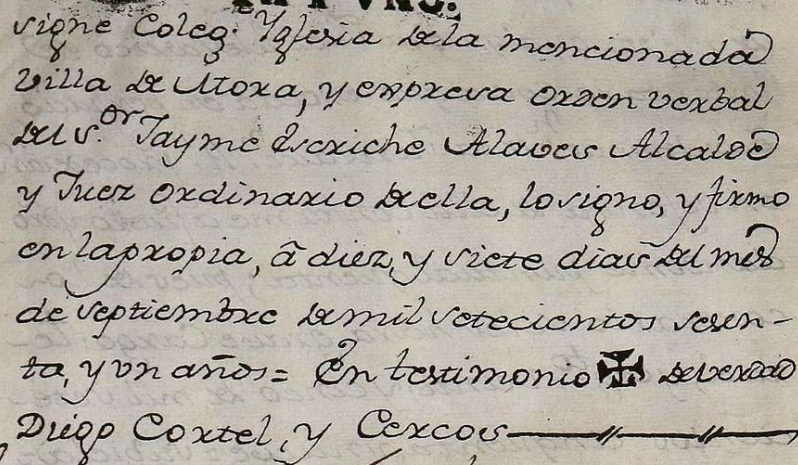 signe Coleg. Yglesia dela mencionada
villa de Mora, y expresa orden verbal
del s.or Jayme Escriche Alaves Alcalde
y Juez ordinario della, lo signo, y firmo
en la propia, â diez, y siete dias del mes
de septiembre de mil setecientos sesen-
ta, y un años= En testimonio ✠ de verdad
Diego Cortel, y Cercos